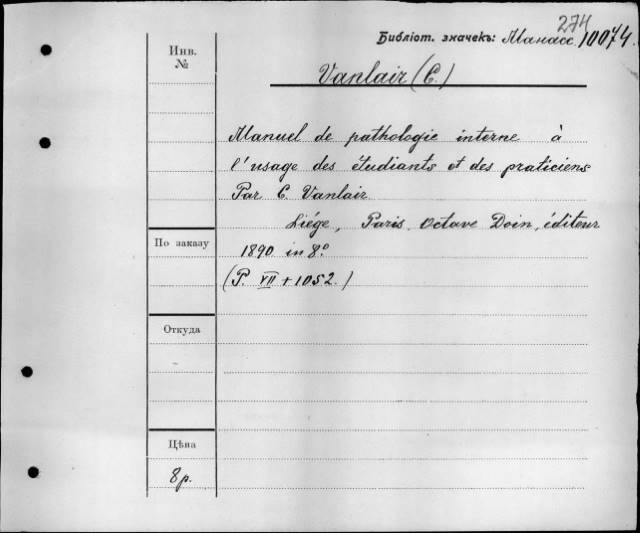 274
Библіот. значекъ: Манасс. 10074.
Инв.
№
Vanlair (C.)
Manuel de pathologie interne à
l'usage des étudiants et des praticiens
Par C. Vanlair
Liége, Paris. Octave Doin, éditeur
1890 in 8º
(P. VII + 1052.)
По заказу
Откуда
Цѣна
8р.